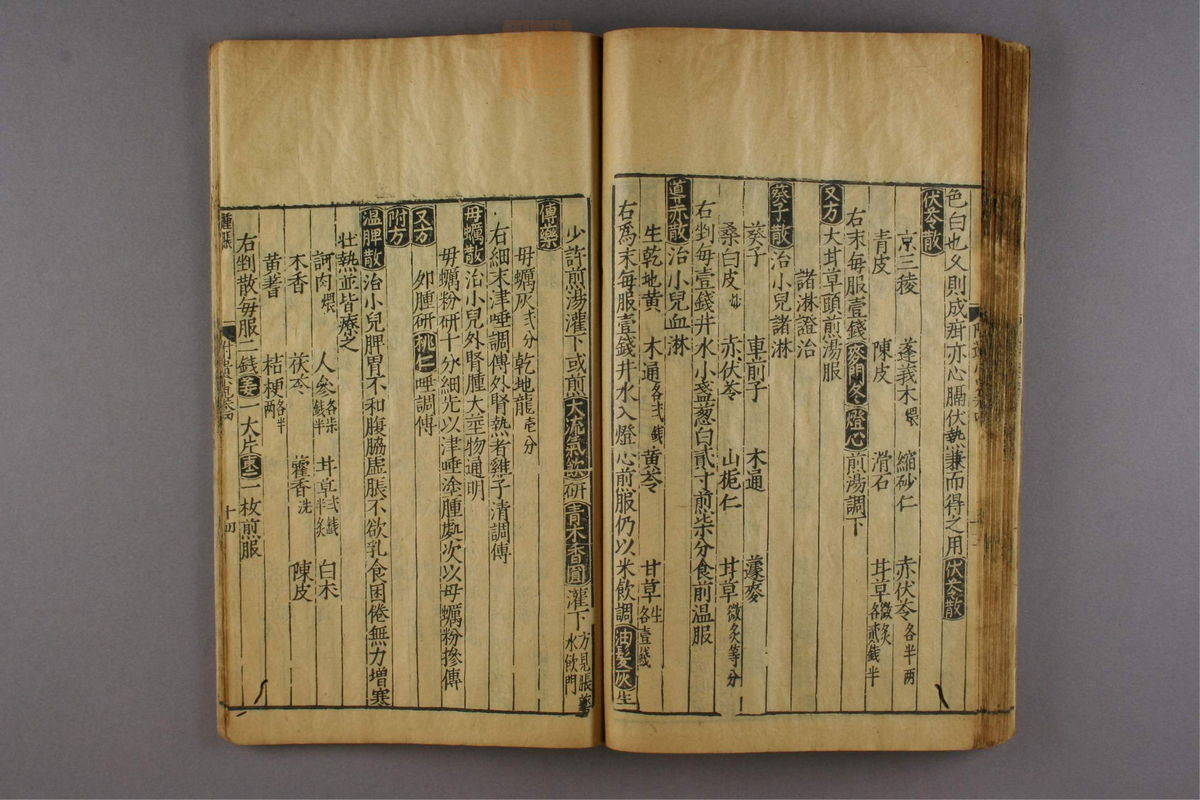 色白也久則成疳亦心膈伏熱兼而得之用伏苓散
伏苓散
京三稜　蓬莪木煨　縮砂仁　赤伏苓各半两
青皮　陳皮　滑石　甘草微炙各貳錢半
右末每服壹錢麥門冬燈心煎湯調下
又方大甘草頭煎湯服
諸淋證治
葵子散治小兒諸淋
葵子　車前子　木通　蘧麥
桑白皮炒　赤伏苓　山梔仁　甘草微炙等分
右剉每壹錢井水小盞葱白貳寸煎柒分食前温服
導赤散治小兒血淋
生乾地黄　木通各弍錢　黄芩　甘草生各壹錢
右為末每服壹錢井水入燈心煎服仍以米飲調油髮灰生
少許煎湯灌下或煎大流氣飲研青木香圓灌下方見脹門
傅藥
毋蠣灰弍分　乾地龍壱分
右細末津唾調傅外腎熱者雞子清調傅
毋蠣散治小兒外腎腫大莖物通明
毋蠣粉研十分細先以津唾塗腫處次以毋蠣粉摻傅
又方
夘腫研桃仁唾調傅
附方
温脾散治小兒脾胃不和腹脇虚脹不欲乳食困倦無力增寒
壮熱並皆療之
訶肉煨　人參各柒錢半　甘草弍錢半炙　白木
木香　茯苓　藿香洗　陳皮
黄蓍　桔梗各半两
右剉散每服二錢姜一大片棗一枚煎服
腫脹
十四